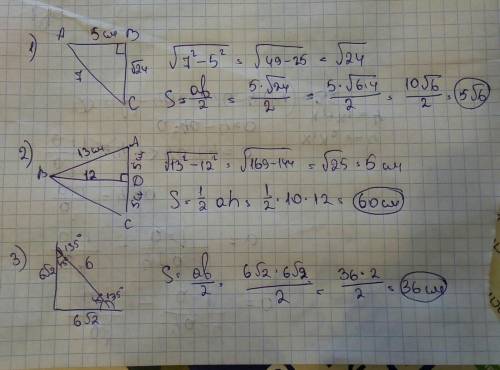 1) A 5 см B
7 √24
C
√7²-5² = √49-25 = √24
S = ab/2 = 5·√24/2 = 5·√6·4/2 = 10√6/2 = 5√6
2) 13 см A
B 12 D
5 см
5 см
C
√13²-12² = √169-144 = √25 = 5 см
S = 1/2 ah = 1/2 · 10 · 12 = 60 см
3) 135°
6√2 6
135°
6√2
S = ab/2 = 6√2·6√2/2 = 36·2/2 = 36 см